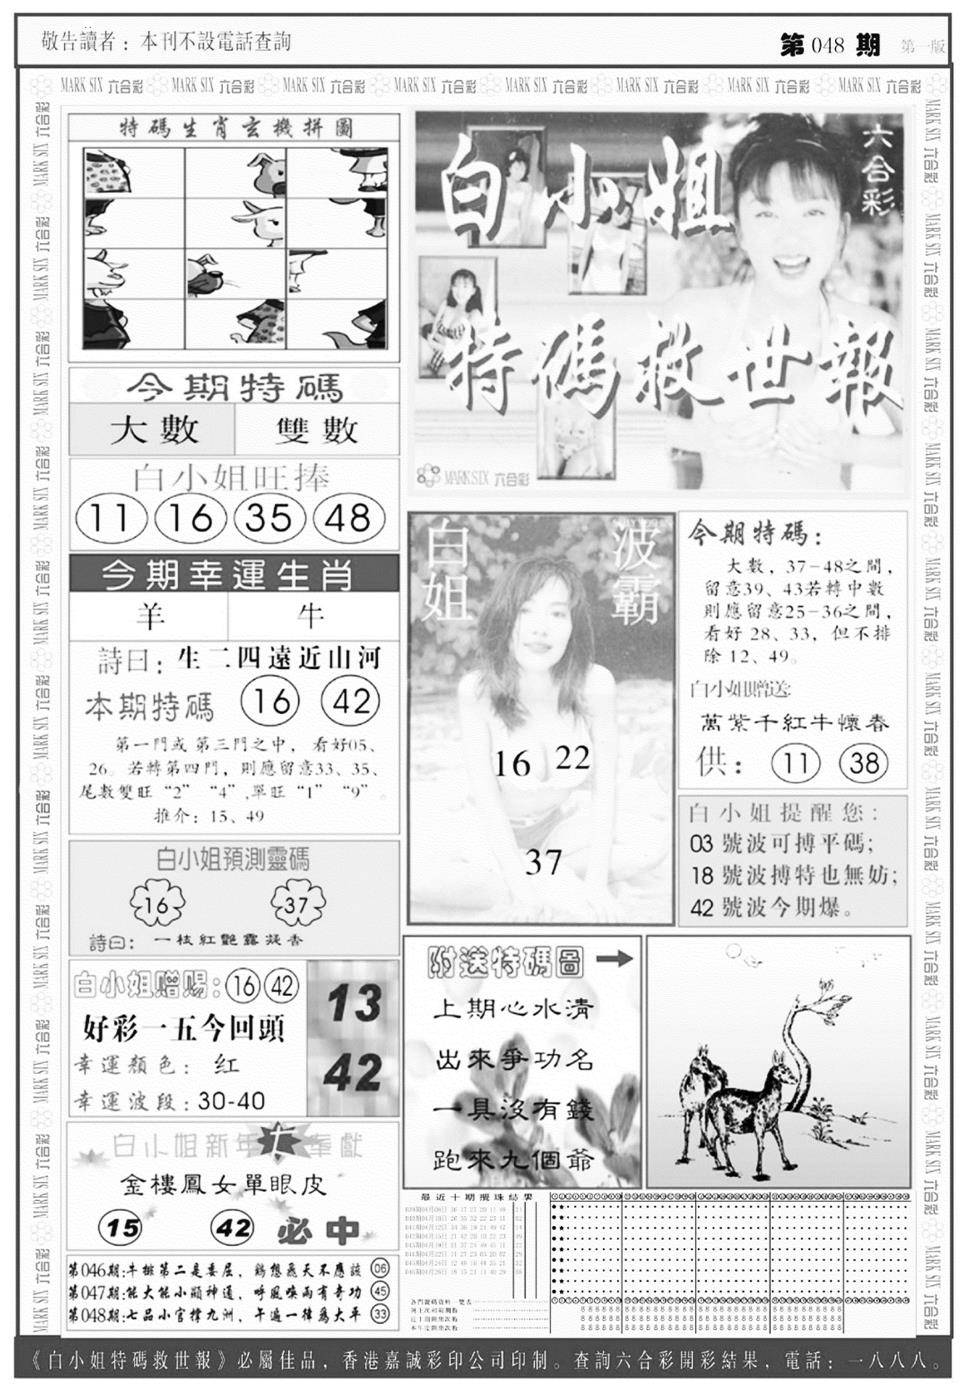 敬告讀者：本刊不設電話查詢
第 048 期 第一版
MARK SIX 六合彩 MARK SIX 六合彩 MARK SIX 六合彩 MARK SIX 六合彩 MARK SIX 六合彩 MARK SIX 六合彩 MARK SIX 六合彩 MARK SIX 六合彩
特碼生肖玄機拼圖
今期特碼
大數 雙數
白小姐旺捧
11 16 35 48
今期幸運生肖
羊 牛
詩曰：生二四遠近山河
本期特碼 16 42
第一門或第三門之中，看好05、
26。若轉第四門，則應留意33、35、
尾數雙旺“2”“4”,單旺“1”“9”。
推介：15、49
白小姐預測靈碼
16 37
詩曰：一枝紅艷露凝香
白小姐赠赐：16 42
好彩一五今回頭
幸運顏色：红
幸運波段：30-40
13
42
白小姐新年 奉獻
金樓鳳女單眼皮
15 42 必中
第046期:牛排第二是委屈，鷄想飛天不應該 06
第047期:能大能小顯神通，呼風喚雨有奇功 45
第048期:七品小官擇九洲，午遍一律為太平 33
六合彩
白小姐
特碼救世報
MARK SIX 六合彩
白姐
波霸
16 22
37
今期特碼：
大數，37-48之間，
留意39、43若轉中數
則應留意25-36之間，
看好 28、33，但不排
除 12、49。
白小姐贈送:
萬紫千紅牛懷春
供： 11 38
白小姐提醒您：
03 號波可搏平碼；
18 號波搏特也無妨；
42 號波今期爆。
附送特碼圖
上期心水清
出來爭功名
一具沒有錢
跑來九個爺
最近十期攪珠結果
《白小姐特碼救世報》必屬佳品，香港嘉誠彩印公司印制。查詢六合彩開彩結果，電話：一八八八。